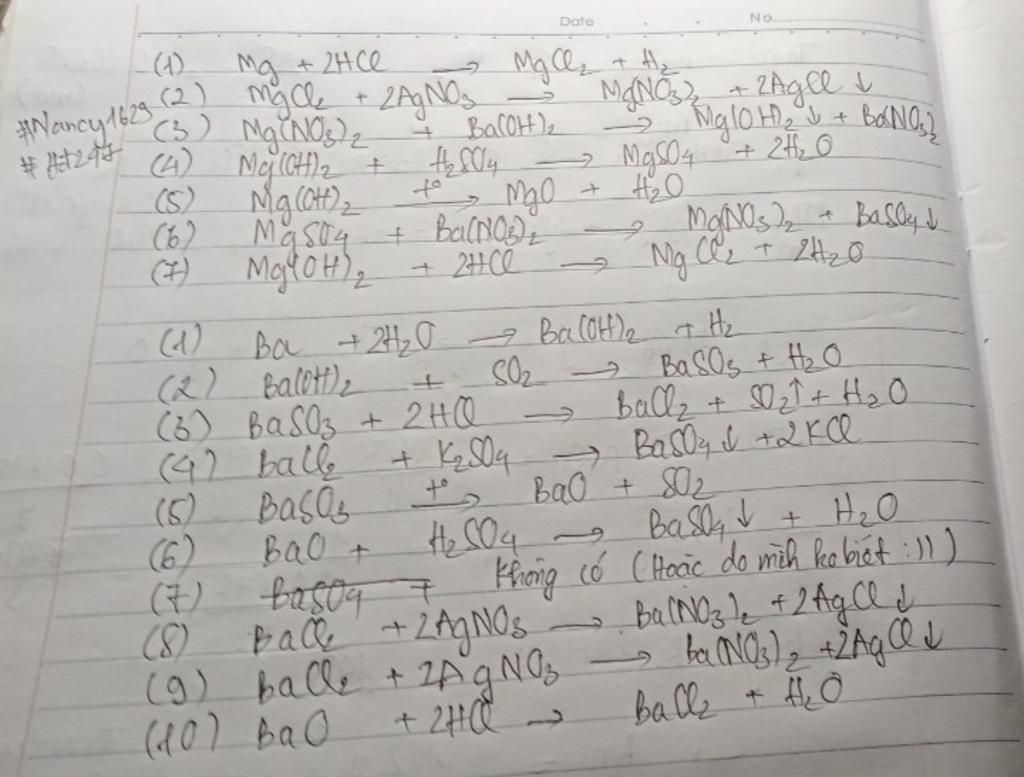 Date No
(1) Mg + 2HCl → MgCl₂ + H₂
(2) MgCl₂ + 2AgNO₃ → Mg(NO₃)₂ + 2AgCl ↓
#Nancy1629
(3) Mg(NO₃)₂ + Ba(OH)₂ → Mg(OH)₂ ↓ + Ba(NO₃)₂
(4) Mg(OH)₂ + H₂SO₄ → MgSO₄ + 2H₂O
(5) Mg(OH)₂ t° → MgO + H₂O
(6) MgSO₄ + Ba(NO₃)₂ → Mg(NO₃)₂ + BaSO₄ ↓
(7) Mg(OH)₂ + 2HCl → MgCl₂ + 2H₂O
(1) Ba + 2H₂O → Ba(OH)₂ + H₂
(2) Ba(OH)₂ + SO₂ → BaSO₃ + H₂O
(3) BaSO₃ + 2HCl → BaCl₂ + SO₂↑ + H₂O
(4) BaCl₂ + K₂SO₄ → BaSO₄ ↓ + 2KCl
(5) BaSO₃ t° → BaO + SO₂
(6) BaO + H₂SO₄ → BaSO₄ ↓ + H₂O
(7) BaSO₄ + Không có (Hoặc do mình ko biết :)) )
(8) BaCl₂ + 2AgNO₃ → Ba(NO₃)₂ + 2AgCl ↓
(9) BaCl₂ + 2AgNO₃ → Ba(NO₃)₂ + 2AgCl ↓
(10) BaO + 2HCl → BaCl₂ + H₂O